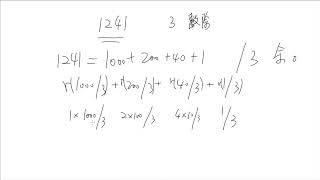 1241 3 整除
1241 = 1000 + 200 + 40 + 1 / 3 余 0
r(1000/3) + r(200/3) + r(40/3) + r(1/3)
1 × 1000/3 2 × 100/3 4 × 10/3 1/3